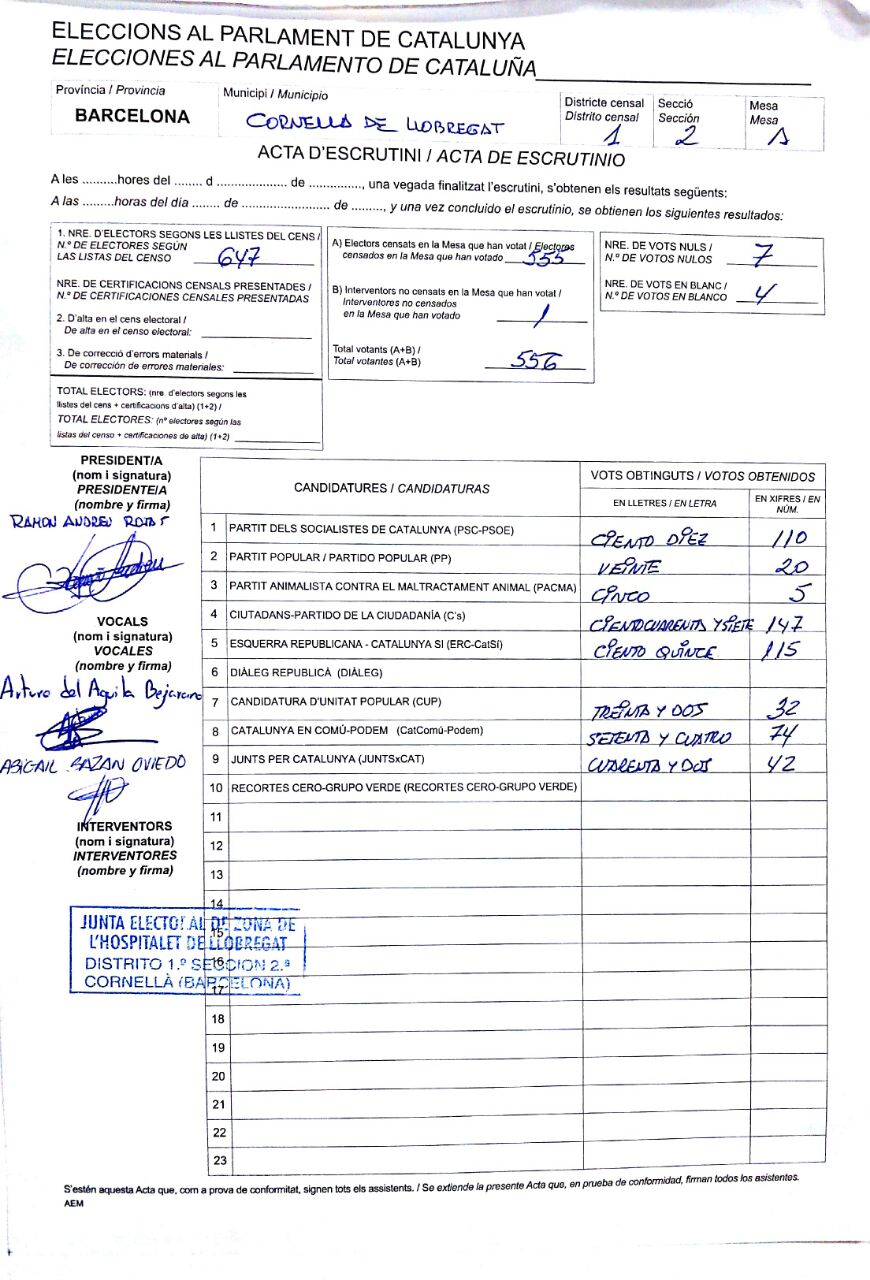 ELECCIONS AL PARLAMENT DE CATALUNYA
ELECCIONES AL PARLAMENTO DE CATALUÑA
Província / Provincia
BARCELONA
Municipi / Municipio
CORNELLA DE LLOBREGAT
Districte censal
Distrito censal
1
Secció
Sección
2
Mesa
Mesa
A
ACTA D'ESCRUTINI / ACTA DE ESCRUTINIO
A les ..........hores del ........ d .................... de ..............., una vegada finalitzat l'escrutini, s'obtenen els resultats següents:
A las ..........horas del día ........ de ......................... de ........., y una vez concluido el escrutinio, se obtienen los siguientes resultados:
1. NRE. D'ELECTORS SEGONS LES LLISTES DEL CENS /
N.º DE ELECTORES SEGÚN
LAS LISTAS DEL CENSO 647
NRE. DE CERTIFICACIONS CENSALS PRESENTADES /
N.º DE CERTIFICACIONES CENSALES PRESENTADAS
2. D'alta en el cens electoral /
De alta en el censo electoral:
3. De correcció d'errors materials /
De corrección de errores materiales:
TOTAL ELECTORS: (nre. d'electors segons les
llistes del cens + certificacions d'alta) (1+2) /
TOTAL ELECTORES: (nº electores según las
listas del censo + certificaciones de alta) (1+2)
A) Electors censats en la Mesa que han votat / Electores
censados en la Mesa que han votado 555
B) Interventors no censats en la Mesa que han votat /
Interventores no censados
en la Mesa que han votado 1
Total votants (A+B) /
Total votantes (A+B) 556
NRE. DE VOTS NULS /
N.º DE VOTOS NULOS 7
NRE. DE VOTS EN BLANC /
N.º DE VOTOS EN BLANCO 4
PRESIDENT/A
(nom i signatura)
PRESIDENTE/A
(nombre y firma)
RAMON ANDREU
VOCALS
(nom i signatura)
VOCALES
(nombre y firma)
Arturo del Aguila Bejarano
ABIGAIL BAZAN OVIEDO
INTERVENTORS
(nom i signatura)
INTERVENTORES
(nombre y firma)
CANDIDATURES / CANDIDATURAS
VOTS OBTINGUTS / VOTOS OBTENIDOS
EN LLETRES / EN LETRA
EN XIFRES / EN NÚM.
1 PARTIT DELS SOCIALISTES DE CATALUNYA (PSC-PSOE) CIENTO DIEZ 110
2 PARTIT POPULAR / PARTIDO POPULAR (PP) VEINTE 20
3 PARTIT ANIMALISTA CONTRA EL MALTRACTAMENT ANIMAL (PACMA) CINCO 5
4 CIUTADANS-PARTIDO DE LA CIUDADANÍA (C's) CIENTO CUARENTA Y SIETE 147
5 ESQUERRA REPUBLICANA - CATALUNYA SI (ERC-CatSí) CIENTO QUINCE 115
6 DIÀLEG REPUBLICÀ (DIÀLEG)
7 CANDIDATURA D'UNITAT POPULAR (CUP) TREINTA Y DOS 32
8 CATALUNYA EN COMÚ-PODEM (CatComú-Podem) SETENTA Y CUATRO 74
9 JUNTS PER CATALUNYA (JUNTSxCAT) CUARENTA Y DOS 42
10 RECORTES CERO-GRUPO VERDE (RECORTES CERO-GRUPO VERDE)
11
12
13
14
15
16
17
18
19
20
21
22
23
JUNTA ELECTORAL DE ZONA DE
L'HOSPITALET DE LLOBREGAT
DISTRITO 1.º SECCION 2.ª
CORNELLÀ (BARCELONA)
S'estén aquesta Acta que, com a prova de conformitat, signen tots els assistents. / Se extiende la presente Acta que, en prueba de conformidad, firman todos los asistentes.
AEM